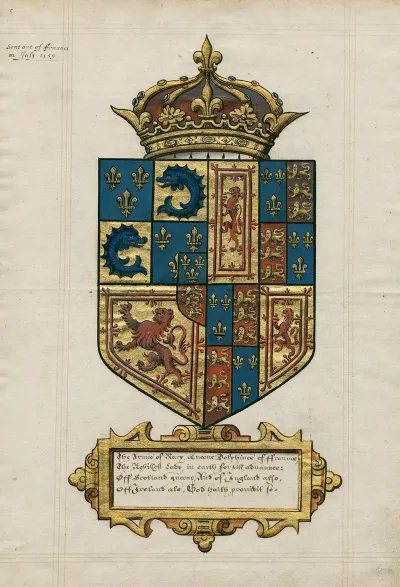 5
Sent out of ffrance
in July 1559
The Armes of Mary Queene Dolphines of ffraunce
The Nobillest Lady in earth for till aduaunce:
Off Scotland queene, And of Ingland also,
Off Ireland als, God haith providit so.